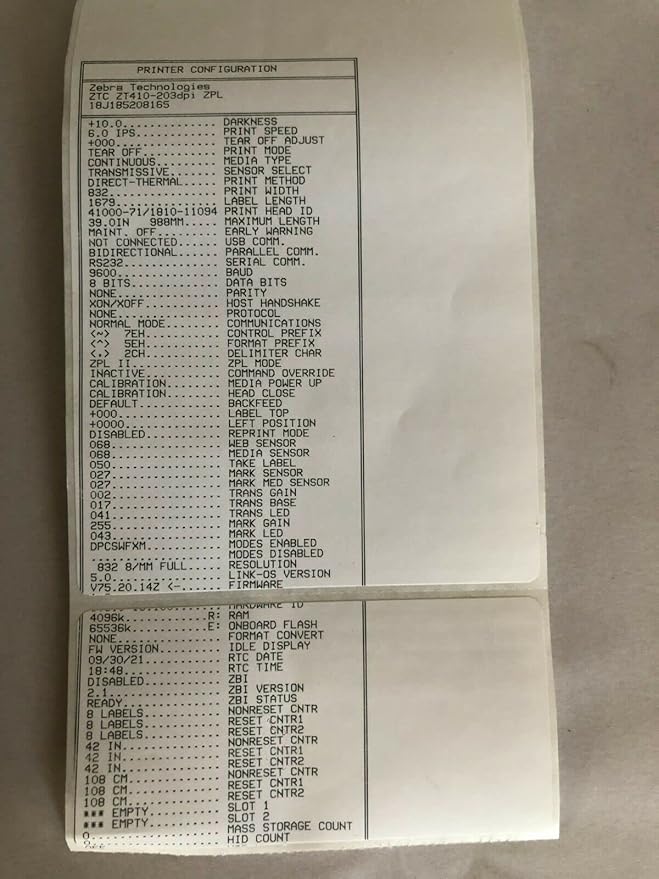 PRINTER CONFIGURATION
Zebra Technologies
ZTC ZT410-203dpi ZPL
18J185208165
+10.0.............. DARKNESS
6.0 IPS............ PRINT SPEED
+000............... TEAR OFF ADJUST
TEAR OFF........... PRINT MODE
CONTINUOUS......... MEDIA TYPE
TRANSMISSIVE....... SENSOR SELECT
DIRECT-THERMAL..... PRINT METHOD
832................ PRINT WIDTH
1679............... LABEL LENGTH
41000-71/1810-11094 PRINT HEAD ID
39.0IN 988MM..... MAXIMUM LENGTH
MAINT. OFF......... EARLY WARNING
NOT CONNECTED...... USB COMM.
BIDIRECTIONAL...... PARALLEL COMM.
RS232.............. SERIAL COMM.
9600............... BAUD
8 BITS............. DATA BITS
NONE............... PARITY
XON/XOFF........... HOST HANDSHAKE
NONE............... PROTOCOL
NORMAL MODE........ COMMUNICATIONS
<~> 7EH........... CONTROL PREFIX
<^> 5EH........... FORMAT PREFIX
<,> 2CH........... DELIMITER CHAR
ZPL II............. ZPL MODE
INACTIVE........... COMMAND OVERRIDE
CALIBRATION........ MEDIA POWER UP
CALIBRATION........ HEAD CLOSE
DEFAULT............ BACKFEED
+000............... LABEL TOP
+0000.............. LEFT POSITION
DISABLED........... REPRINT MODE
068................ WEB SENSOR
068................ MEDIA SENSOR
050................ TAKE LABEL
027................ MARK SENSOR
027................ MARK MED SENSOR
002................ TRANS GAIN
017................ TRANS BASE
041................ TRANS LED
255................ MARK GAIN
043................ MARK LED
DPCSWFXM........... MODES ENABLED
................... MODES DISABLED
832 8/MM FULL..... RESOLUTION
5.0................ LINK-OS VERSION
V75.20.14Z <-...... FIRMWARE
HARDWARE ID
4096k............R: RAM
65536k...........E: ONBOARD FLASH
NONE............... FORMAT CONVERT
FW VERSION......... IDLE DISPLAY
09/30/21........... RTC DATE
18:48.............. RTC TIME
DISABLED........... ZBI
2.1................ ZBI VERSION
READY.............. ZBI STATUS
8 LABELS........... NONRESET CNTR
8 LABELS........... RESET CNTR1
8 LABELS........... RESET CNTR2
42 IN.............. NONRESET CNTR
42 IN.............. RESET CNTR1
42 IN.............. RESET CNTR2
108 CM............. NONRESET CNTR
108 CM............. RESET CNTR1
108 CM............. RESET CNTR2
*** EMPTY.......... SLOT 1
*** EMPTY.......... SLOT 2
0.................. MASS STORAGE COUNT
0.................. HID COUNT